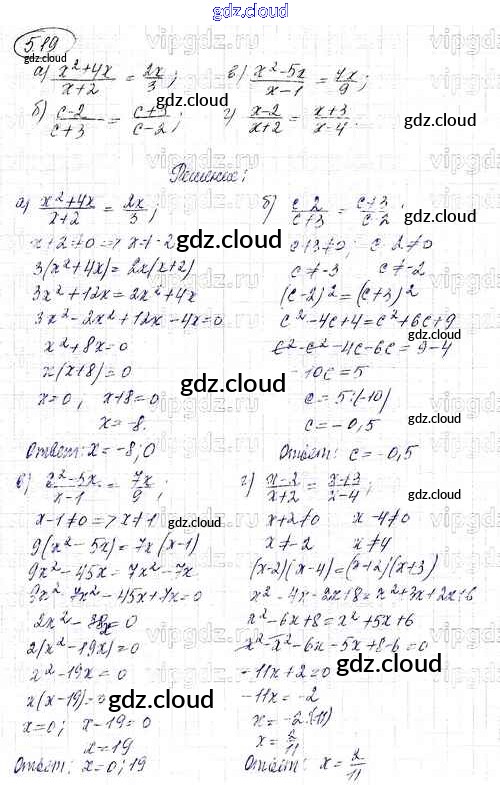 gdz.cloud
519
а) (x²+4x)/(x+2) = 2x/3; в) (x²-5x)/(x-1) = 7x/9;
б) (c-2)/(c+3) = (c+3)/(c-2); г) (x-2)/(x+2) = (x+3)/(x-4).
Решение:
а) (x²+4x)/(x+2) = 2x/3;
x+2≠0 => x≠-2
3(x²+4x)=2x(x+2)
3x²+12x=2x²+4x
3x²-2x²+12x-4x=0
x²+8x=0
x(x+8)=0
x=0; x+8=0
x=-8.
Ответ: x=-8; 0
б) (c 2)/(c+3) = (c+3)/(c 2);
c+3≠0; c-2≠0
c≠-3 c≠-2
(c-2)²=(c+3)²
c²-4c+4=c²+6c+9
c²-c²-4c-6c=9-4
-10c=5
c=5:(-10)
c=-0,5
Ответ: c=-0,5
в) (x²-5x)/(x-1) = 7x/9;
x-1≠0 => x≠1
9(x²-5x)=7x(x-1)
9x²-45x=7x²-7x
9x² 7x²-45x+7x=0
2x²-38x=0
2(x²-19x)=0
x²-19x=0
x(x-19)=0
x=0; x-19=0
x=19
Ответ: x=0; 19
г) (x-2)/(x+2) = (x+3)/(x-4);
x+2≠0 x-4≠0
x≠-2 x≠4
(x-2)(x-4)=(x+2)(x+3)
x²-4x-2x+8=x²+3x+2x+6
x²-6x+8=x²+5x+6
x²-x²-6x-5x+8-6=0
-11x+2=0
-11x=-2
x=-2:(-11)
x=2/11
Ответ: x=2/11